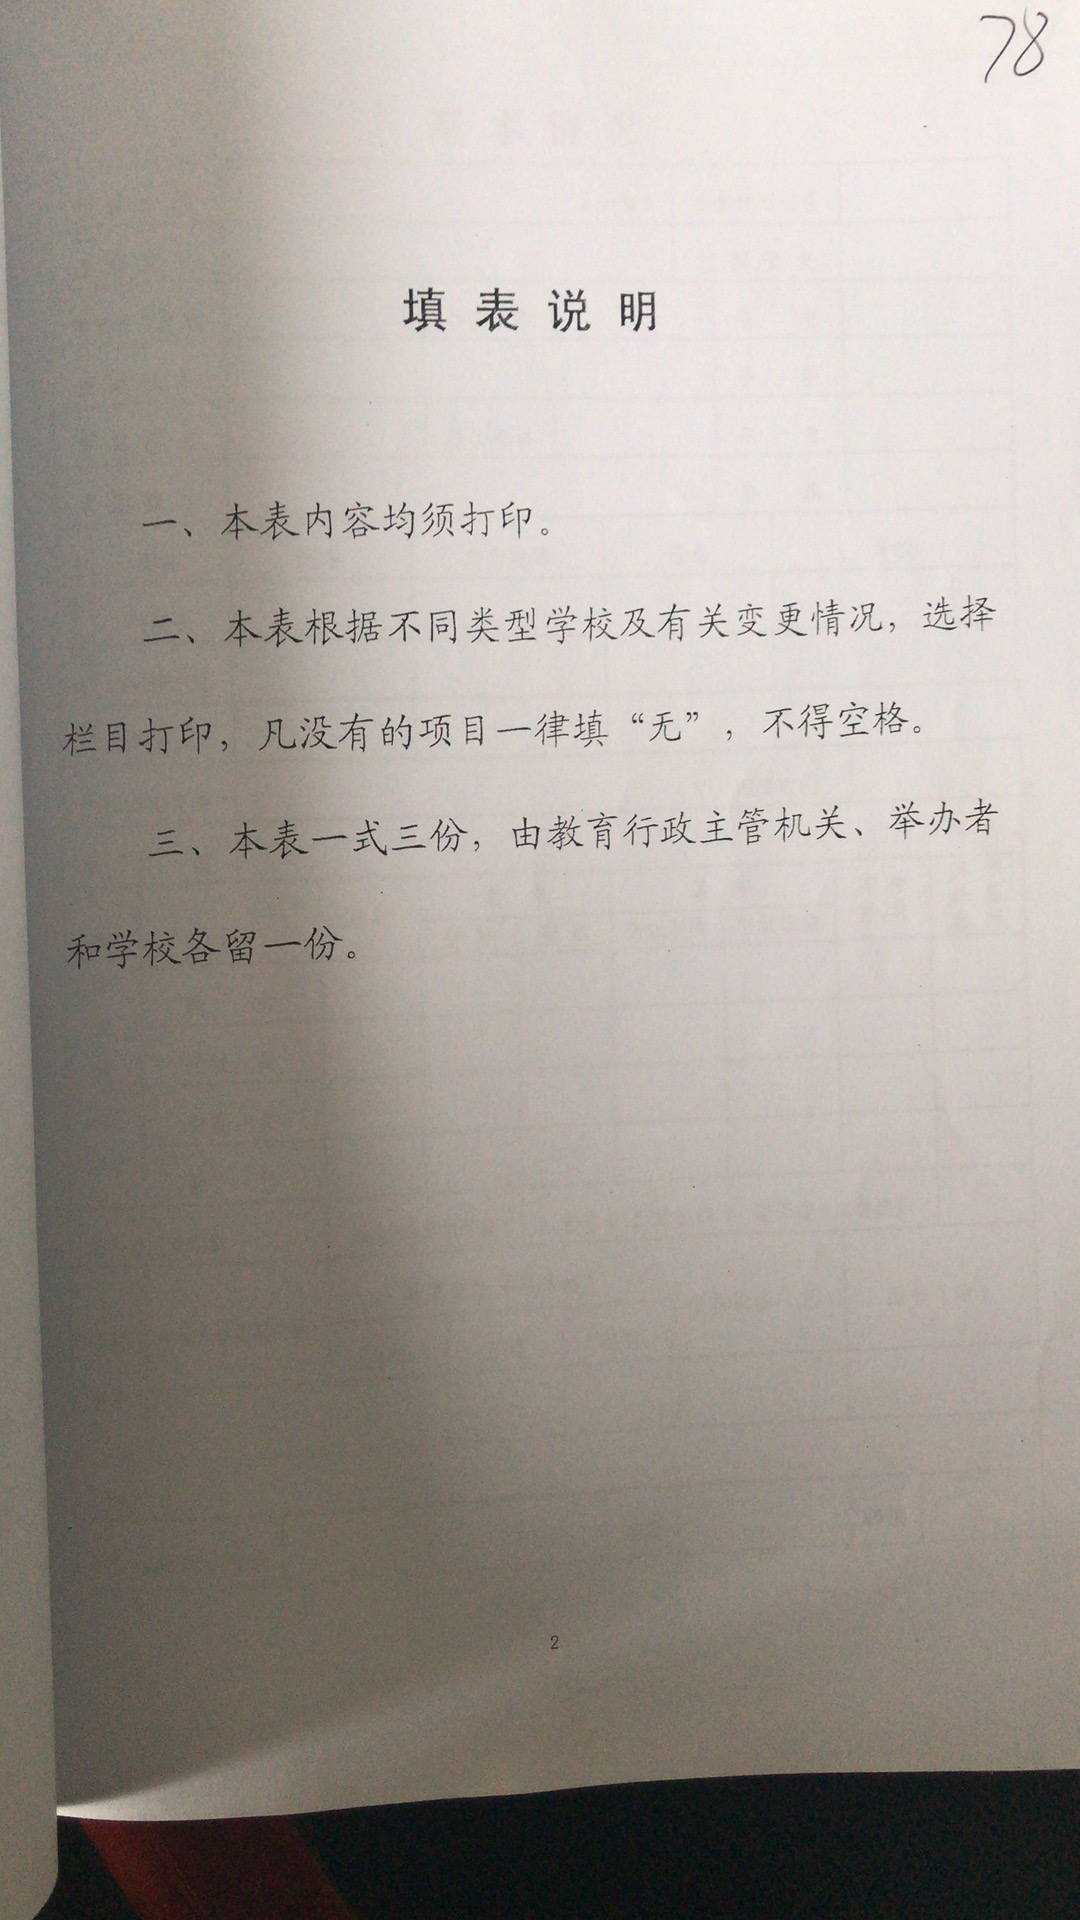 78
填表说明
一、本表内容均须打印。
二、本表根据不同类型学校及有关变更情况，选择
栏目打印，凡没有的项目一律填“无”，不得空格。
三、本表一式三份，由教育行政主管机关、举办者
和学校各留一份。
2